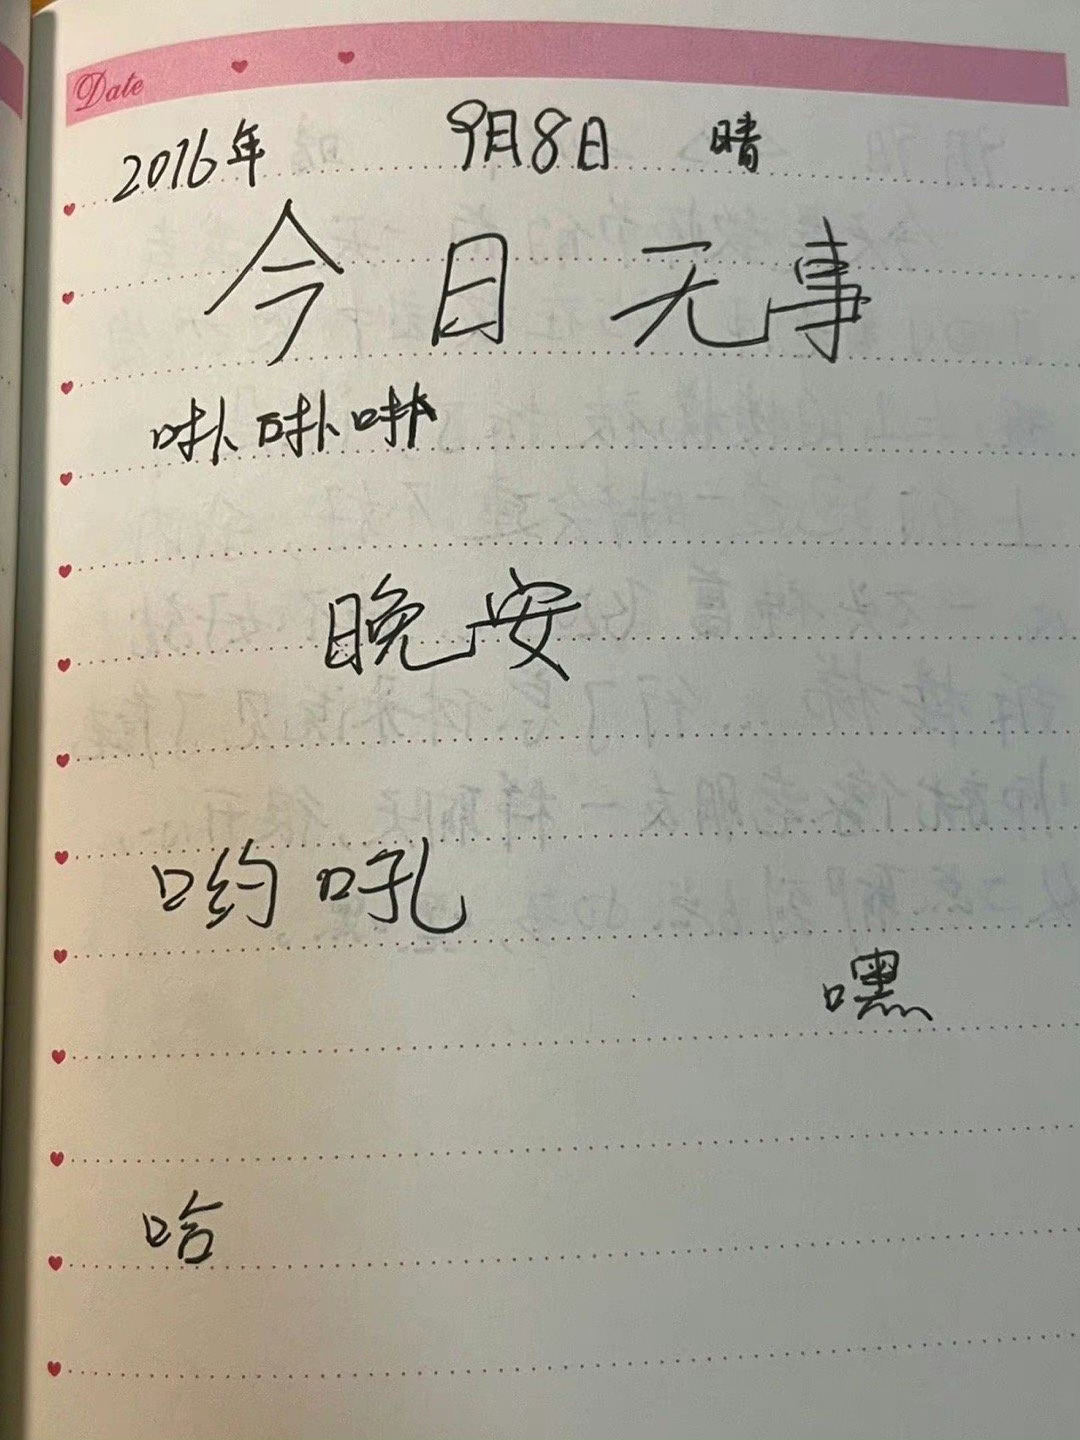 Date
2016年 9月8日 晴
今日无事
晚安
哟吼
嘿
哈